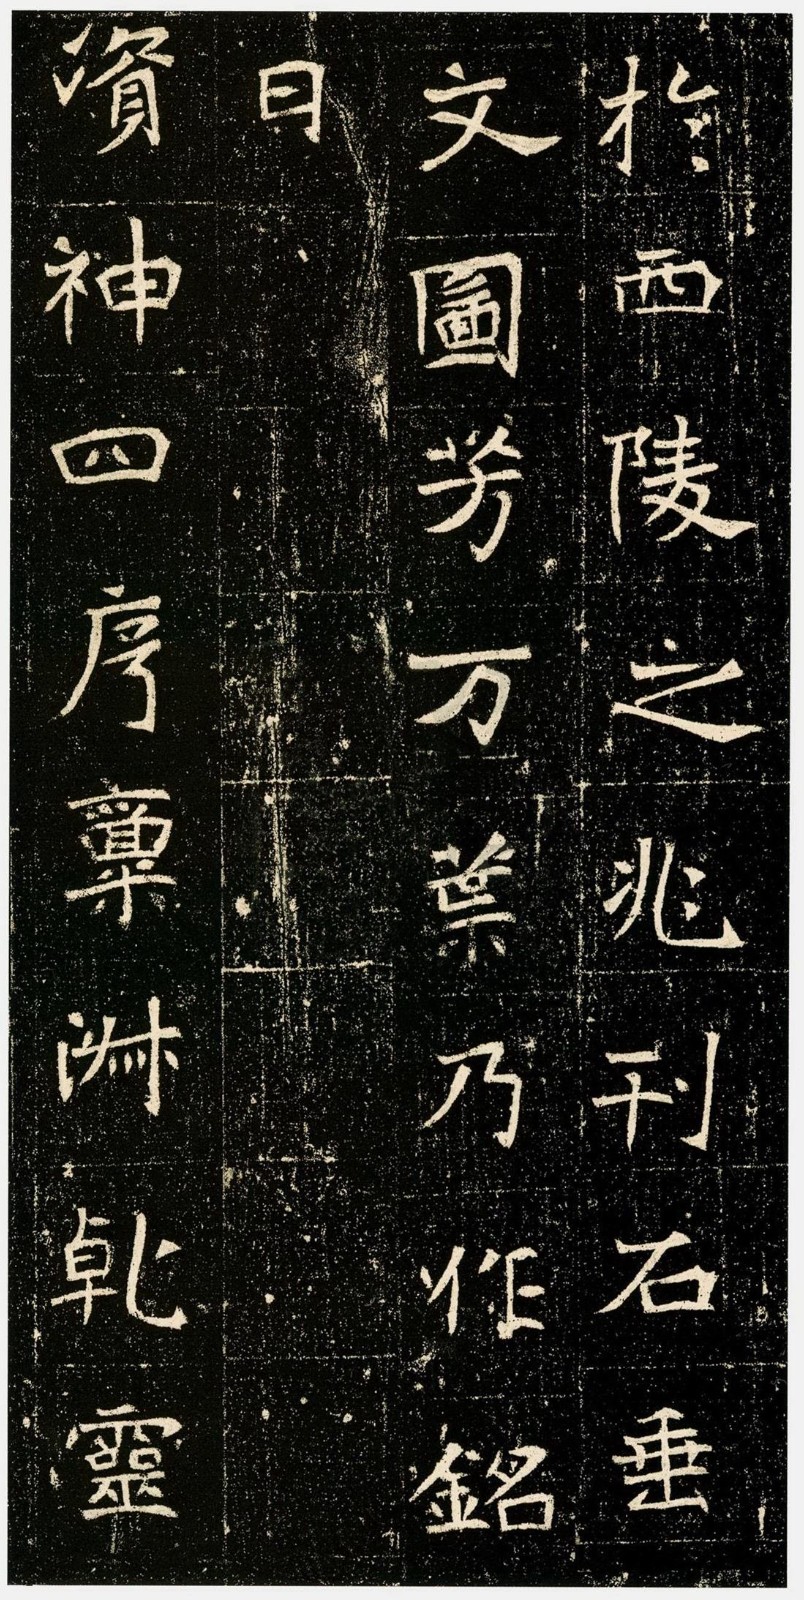 於西陵之兆刊石垂
文圖芳万葉乃作銘
曰
資神四序稟淑乾靈